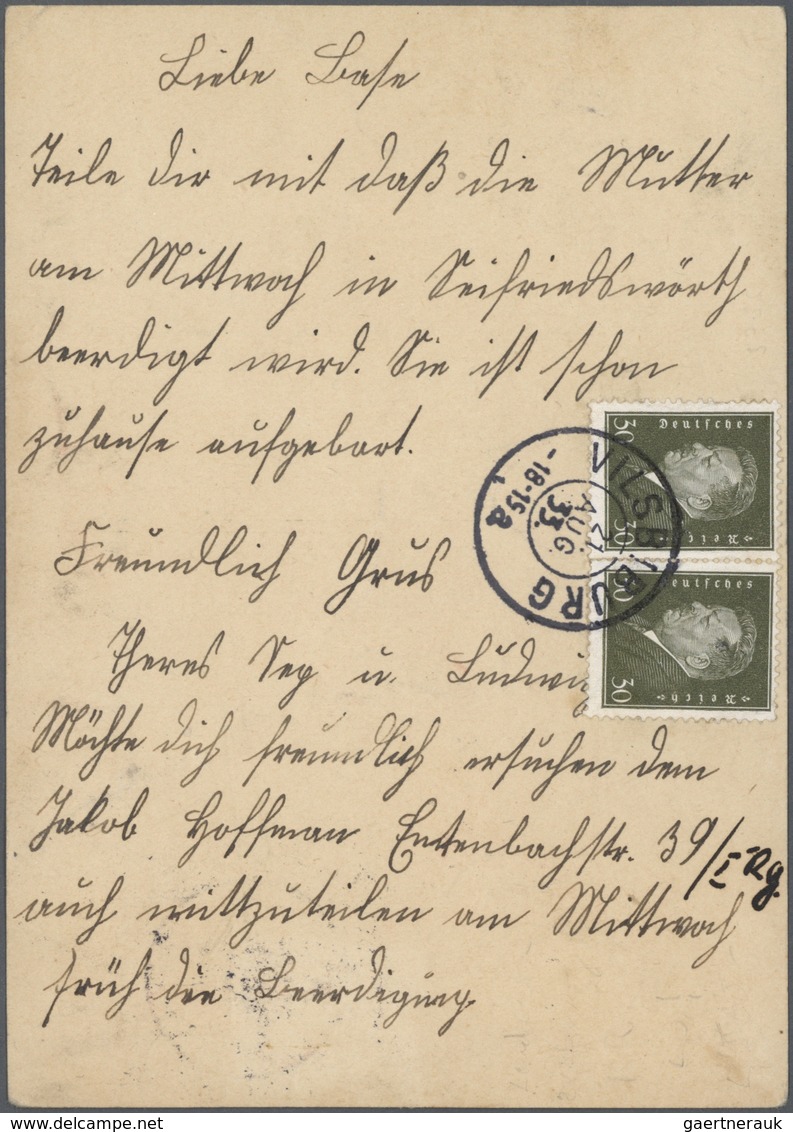 Liebe Base
Teile dir mit daß die Mutter
am Mittwoch in Seifriedswörth
beerdigt wird. Sie ist schon
zuhause aufgebart.
Freundlich Grus
Theres Sep u. Ludwig
Möchte dich freundlich ersuchen dem
Jakob Hoffman Entenbachstr. 39/I Rg.
auch mittzuteilen am Mittwoch
früh die Beerdigung.
VILSBIBURG
23. AUG. 33.
-18-19
1a
Deutsches
Reich
30
30
Deutsches
Reich
30
30
gaertnerauk